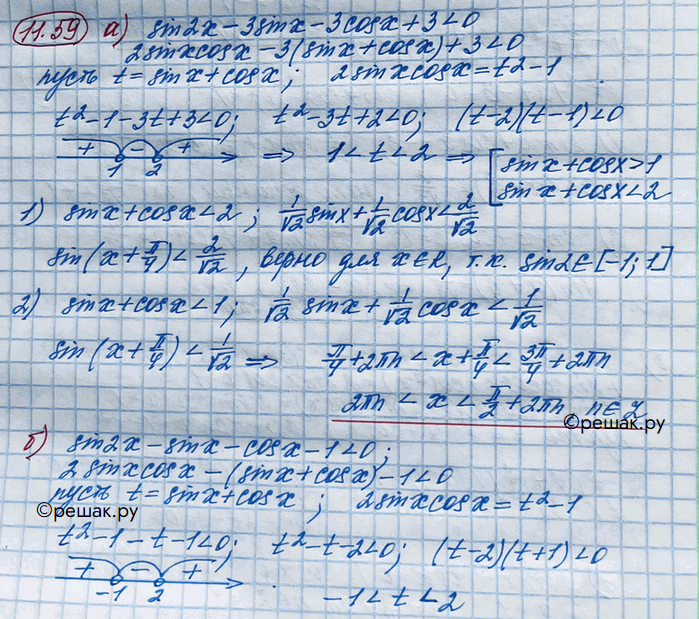 11.59 а) sin2x - 3sinx - 3cosx + 3 < 0
2sinxcosx - 3(sinx + cosx) + 3 < 0
пусть t = sinx + cosx; 2sinxcosx = t² - 1
t² - 1 - 3t + 3 < 0; t² - 3t + 2 < 0; (t - 2)(t - 1) < 0
+ - + 1 2 ⇒ 1 < t < 2 ⇒ [ sinx + cosx > 1
sinx + cosx < 2
1) sinx + cosx < 2; 1/√2 sinx + 1/√2 cosx < 2/√2
sin(x + π/4) < 2/√2, верно для x∈R, т.к. sin2∈[-1; 1]
2) sinx + cosx < 1; 1/√2 sinx + 1/√2 cosx < 1/√2
sin(x + π/4) < 1/√2 ⇒ π/4 + 2πn < x + π/4 < 3π/4 + 2πn
2πn < x < π/2 + 2πn, n∈Z
©решак.ру
б) sin2x - sinx - cosx - 1 < 0;
2sinxcosx - (sinx + cosx) - 1 < 0
пусть t = sinx + cosx; 2sinxcosx = t² - 1
©решак.ру
t² - 1 - t - 1 < 0; t² - t - 2 < 0; (t - 2)(t + 1) < 0
+ - + -1 2 -1 < t < 2